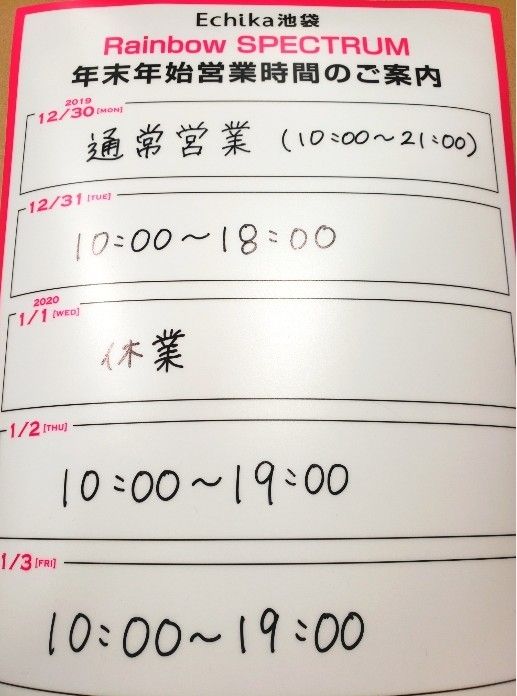 Echika池袋
Rainbow SPECTRUM
年末年始営業時間のご案内
2019
12/30[MON]
通常営業 (10:00〜21:00)
12/31[TUE]
10:00〜18:00
2020
1/1[WED]
休業
1/2[THU]
10:00〜19:00
1/3[FRI]
10:00〜19:00